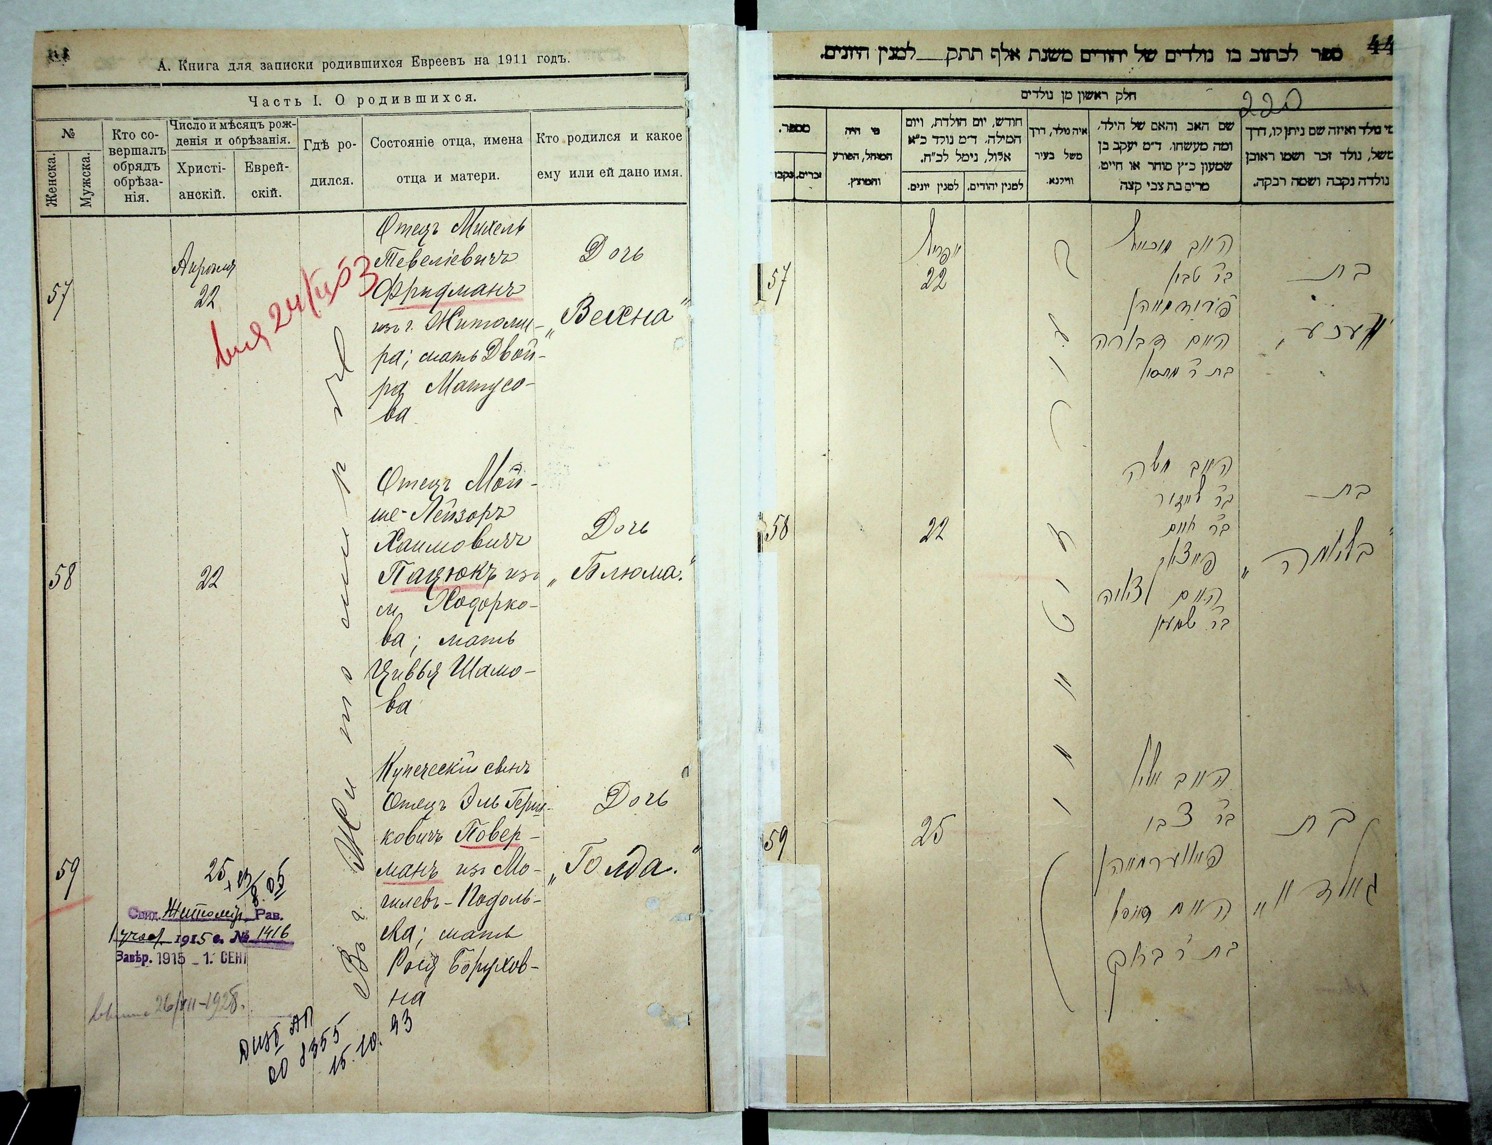 А. Книга для записки родившихся Евреевъ на 1911 годъ.
Часть I. О родившихся.
№
Женска.
Мужска.
Кто со-
вершалъ
обрядъ
обрѣза-
нія.
Число и мѣсяцъ рож-
денія и обрѣзанія.
Христі-
анскій.
Еврей-
скій.
Гдѣ ро-
дился.
Состояніе отца, имена
отца и матери.
Кто родился и какое
ему или ей дано имя.
57
Апрѣль
22
Отецъ Михель
Тевеліевичъ
Фридманъ
изъ г. Житоми-
ра; мать Двой-
ра Матусо-
ва
Дочь
„Вехна"
Въ г. Житомирѣ
58
22
Отецъ Мой-
ше-Лейзоръ
Хаимовичъ
Пацюкъ изъ
м. Ходорко-
ва; мать
Цивья Шамо-
ва
Дочь
„Блюма."
59
25
Купеческій сынъ
Отецъ Эль Герш-
ковичъ Повер-
манъ изъ Мо-
гилевъ-Подоль-
ска; мать
Рося Борухов-
на
Дочь
„Голда."
Свид. Житомір. Рав.
1915 г. № 1416
Завѣр. 1915 - 1. СЕН
26/VII-1928.
20 8355
15.10.93
44
ספר לכתוב בו נולדים של יהודים משנת אלף תתק___ למנין היונים.
חלק ראשון מן נולדים
220
מספר.
זכרים.
נקבות
מי היה
המוהל, הפורע
והמוצץ.
חודש, יום הולדת, ויום
המילה. ד״מ נולד כ״א
אלול, נימל לכ״ח.
למנין יונים.
למנין יהודים.
איה נולד, דרך
משל בעיר
ווילנא.
שם האב והאם של הילד.
ומה מעשהו. ד״מ יעקב בן
שמעון כ״ץ סוחר או חייט.
מרים בת צבי קצה
מי נולד ואיזה שם ניתן לו, דרך
משל, נולד זכר ושמו ראובן
נולדה נקבה ושמה רבקה.
57
אפריל
22
האב מיכאל
בר׳ טבל
פרידמאן
האם דבורה
בת ר׳ מתס
בת
58
22
האב משה
בר׳ חיים
פאצוק
האם צביה
בת
בלומה
59
25
האב אלי
בר׳ צבי
פאווערמאן
האם רויסל
בת ר׳ ברוך
בת
גאלדא